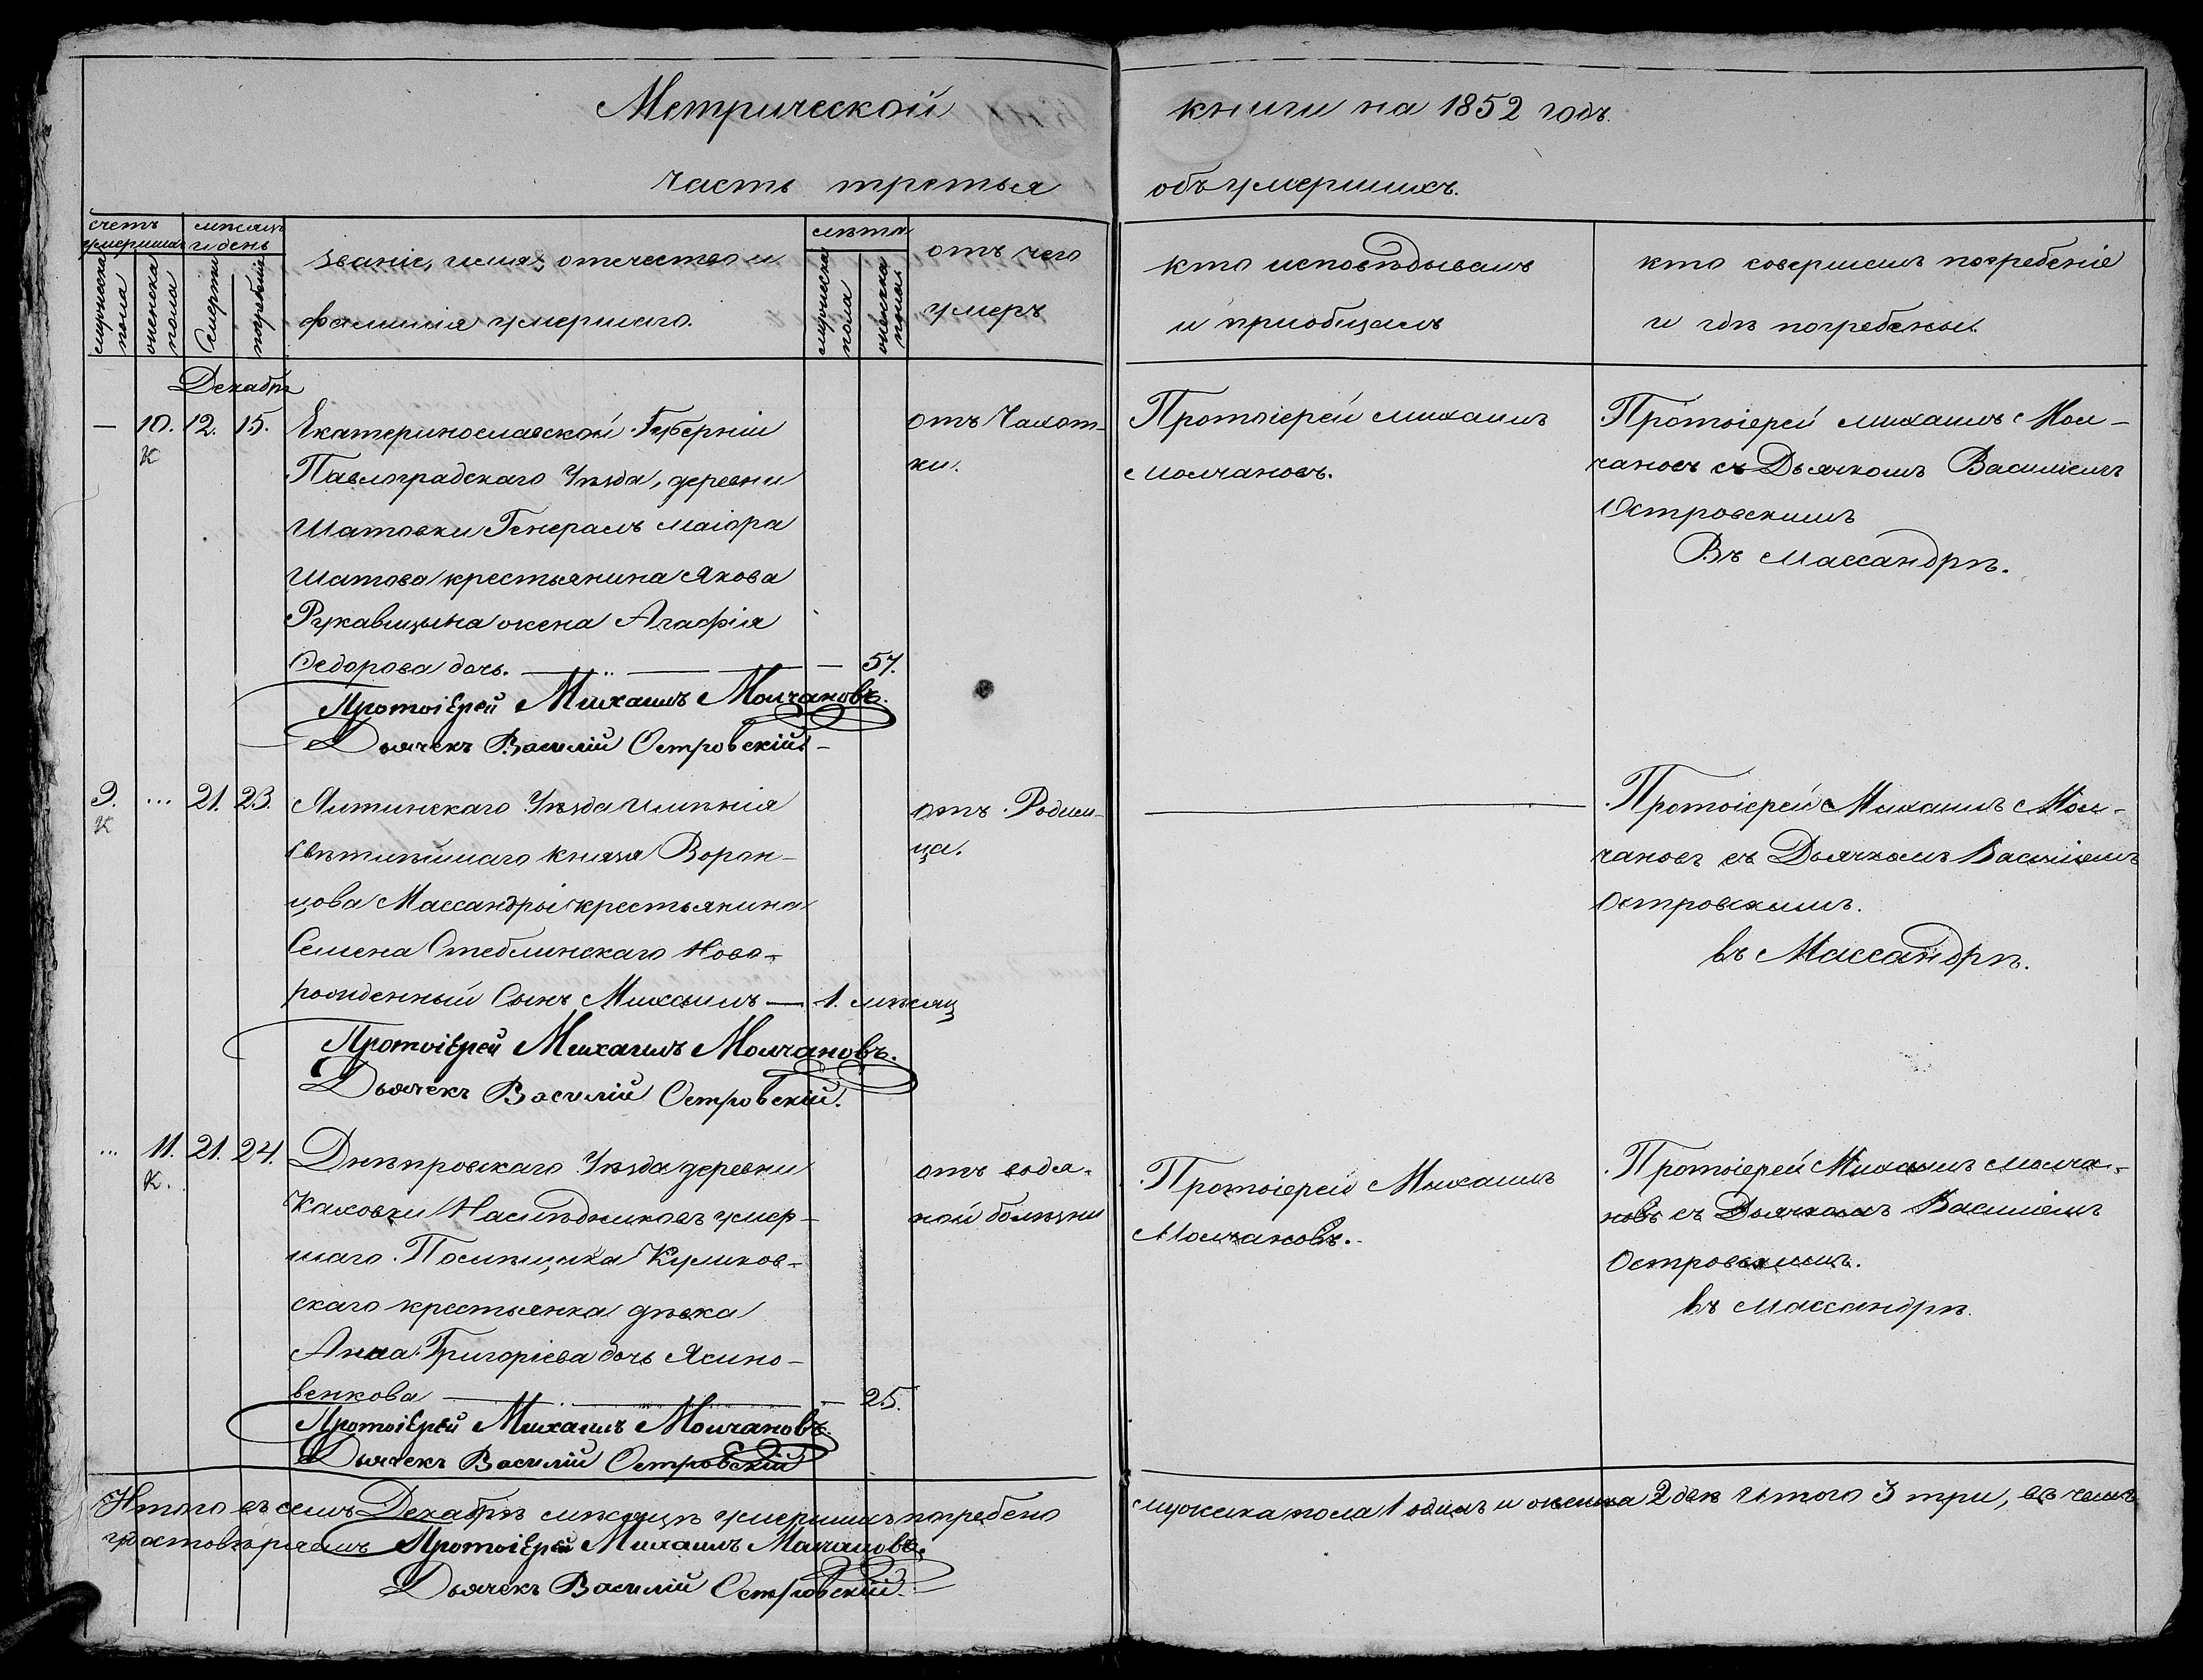 Метрической книги на 1852 годъ.
часть третья объ умершихъ.
счетъ умершихъ
мужеска пола
женска пола
мѣсяцъ и день
Смерти
погребенія
званіе, имя, отечество и
фамилія умершаго.
лѣта
мужеска пола
женска пола
отъ чего
умеръ
кто исповѣдывалъ
и приобщалъ
кто совершалъ погребеніе
и гдѣ погребены.
Декабрь
— 10. 12. 15.
К
Екатеринославской Губерніи
Павлоградскаго Уѣзда, деревни
Шатовки Генералъ маіора
Шатова крестьянина Якова
Рукавицына жена Агафія
Федорова дочь. — — 57.
отъ Чахот-
ки.
Протоіерей Михаилъ
Молчановъ.
Протоіерей Михаилъ Мол-
чановъ съ Дьячкомъ Василіемъ
Островскимъ
Въ Массандрѣ.
Протоіерей Михаилъ Молчановъ.
Дьячекъ Василій Островскій.
9. ... 21. 23.
К
Ялтинскаго Уѣзда имѣнія
Свѣтлѣйшаго князя Ворон-
цова Массандры крестьянина
Семена Стеблинскаго Ново-
рожденный Сынъ Михаилъ — 1. мѣсяц
отъ Родим-
ца.
Протоіерей Михаилъ Мол-
чановъ съ Дьячкомъ Василіемъ
Островскимъ.
въ Массандрѣ.
Протоіерей Михаилъ Молчановъ.
Дьячекъ Василій Островскій.
... 11. 21. 24.
К.
Днѣпровскаго Уѣзда деревни
Каховки Наслѣдниковъ умер-
шаго Помѣщика Куликов-
скаго крестьянка дѣвка
Анна Григоріева дочь Ясино-
венкова — — 25.
отъ водя-
ной болѣзни
Протоіерей Михаилъ
Молчановъ.
Протоіерей Михаилъ Молча-
новъ съ Дьячкомъ Василіемъ
Островскимъ.
въ Массандрѣ.
Протоіерей Михаилъ Молчановъ.
Дьячекъ Василій Островскій
Итого въ семъ Декабрѣ мѣсяцѣ умершихъ погребено мужеска пола 1 одинъ и женска 2 двѣ итого 3 три, въ чемъ
удостовѣряемъ Протоіерей Михаилъ Молчановъ.
Дьячекъ Василій Островскій.